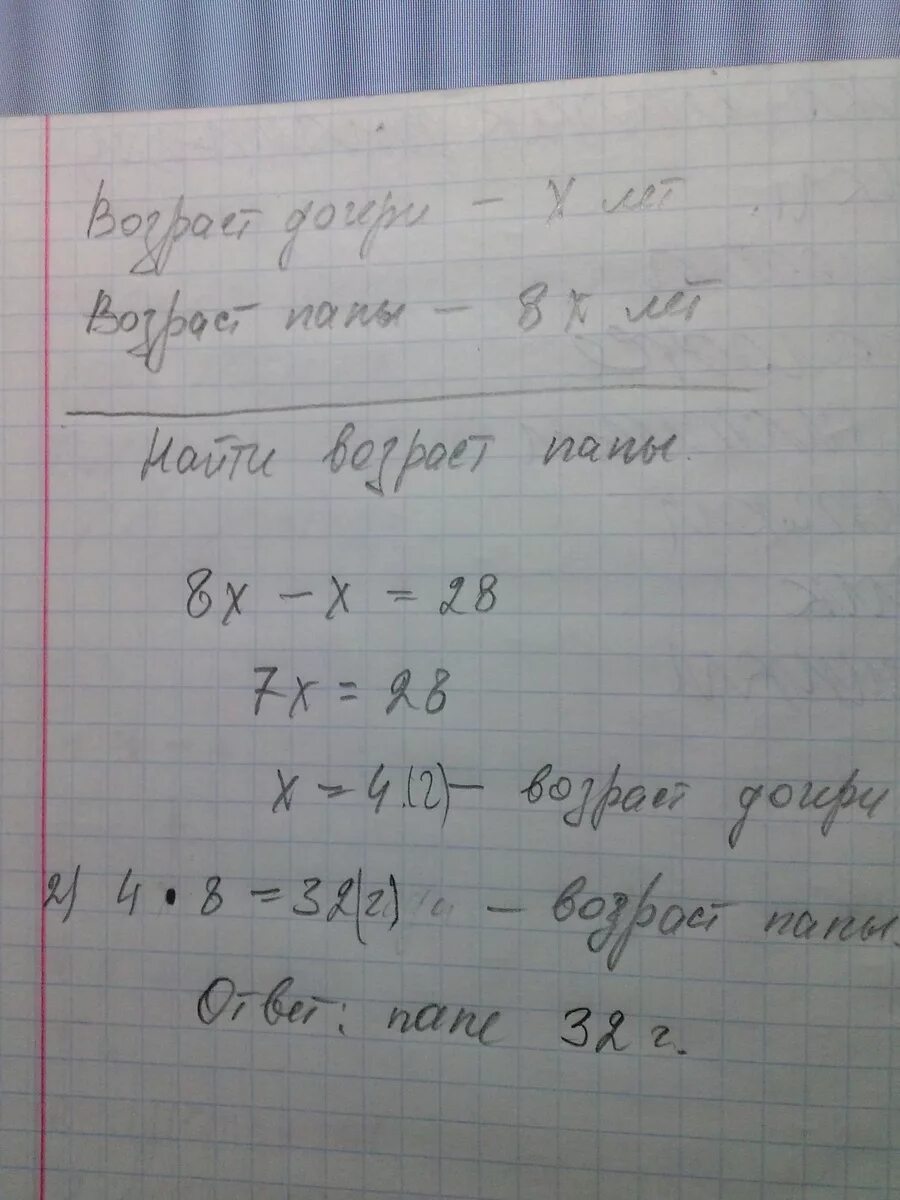 Возраст дочери - х лет
Возраст папы - 8х лет
Найти возраст папы.
8х - х = 28
7х = 28
х = 4.(г) - возраст дочери
2) 4 • 8 = 32(г) - возраст папы.
Ответ: папе 32 г.